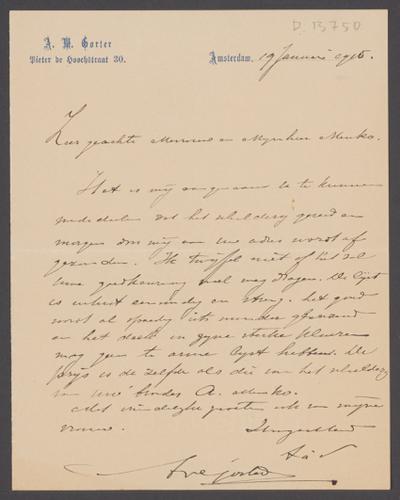 D. B5750
A. M. Gorter
Pieter de Hoochstraat 30.
Amsterdam, 19 Januari 1915.
Zeer geachte Mevrouw en Mijnheer Menko.
Het is mij aangenaam U te kunnen
mededeelen dat het schilderij gereed en
morgen door mij aan uw adres wordt af
gezonden. Ik twijfel niet of het zal
Uwe goedkeuring wel weg dragen. De lijst
is uiterst eenvoudig en streng. Het goud
wordt al spoedig iets minder glanzend
en het stuk in zijne sterke kleuren
mag geen te arme lijst hebben. De
prijs is de zelfde als die van het schilderij
van uw broeder A. Menko.
Met vriendelijke groeten ook van mijne
vrouw.